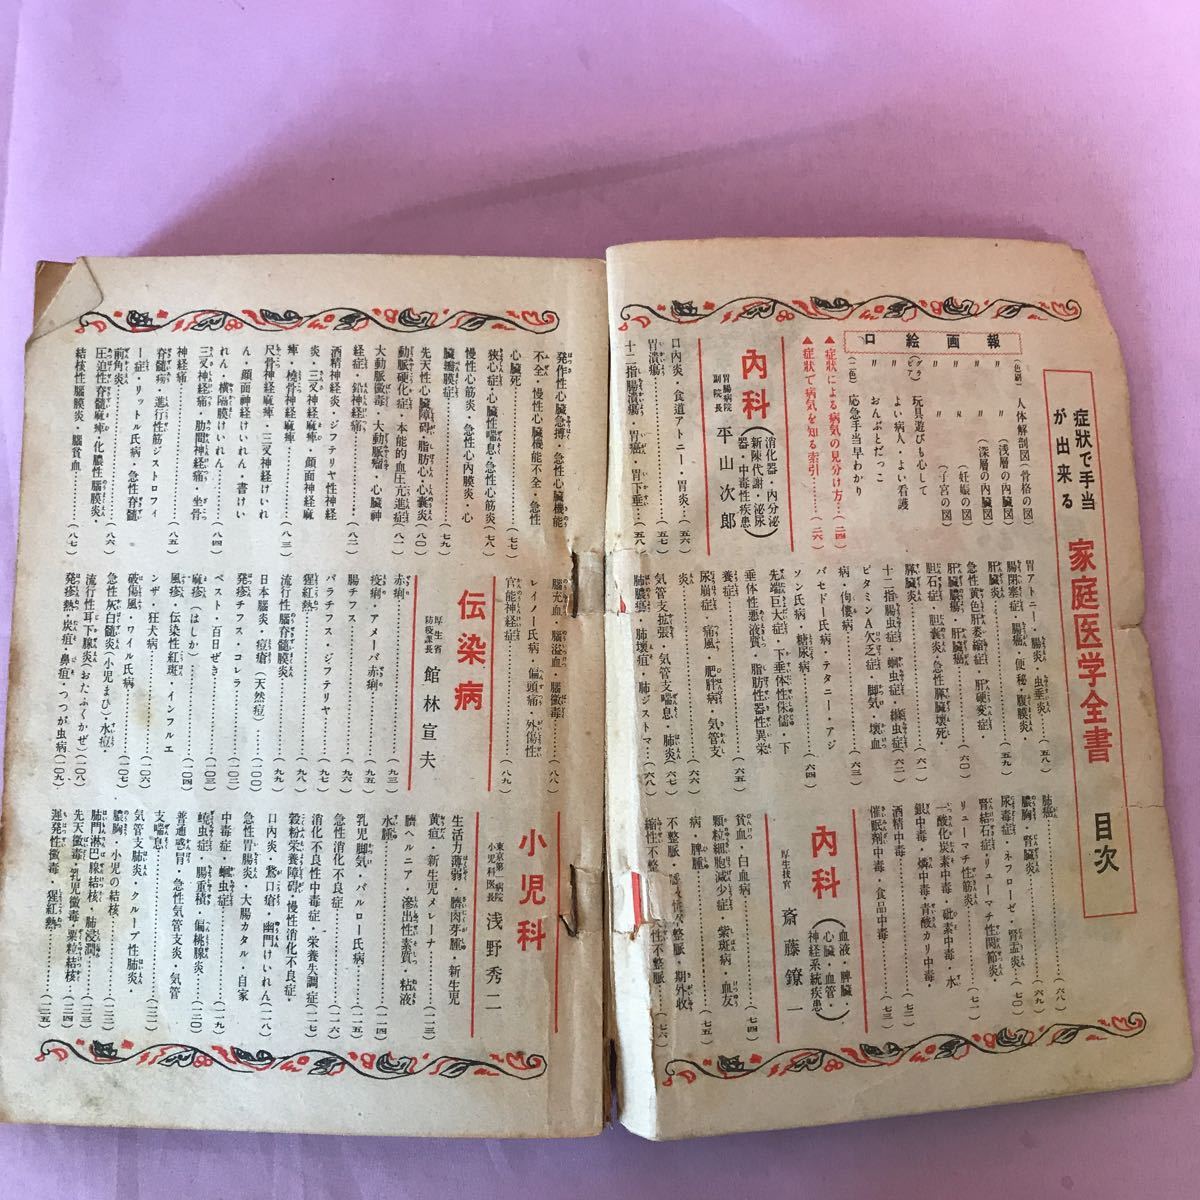 症狀で手当
が出来る
家庭医学全書
目次
口絵画報
(色刷) 人体解剖図(骨格の図)
〃 〃 (浅層の内臓図)
〃 〃 (深層の内臓図)
〃 〃 (妊娠の図)
〃 〃 (子宮の図)
(グラビア) 玩具遊びも心して
〃 よい病人・よい看護
〃 おんぶとだっこ
(二色) 応急手当早わかり
▲症狀による病気の見分け方……(二四)
▲症狀で病気を知る索引……(二六)
內科
(消化器・内分泌
新陳代謝・泌尿
器・中毒性疾患)
胃腸病院
副院長
平山次郎
口内炎・食道アトニー・胃炎……(五六)
胃潰瘍……(五七)
十二指腸潰瘍・胃癌・胃下垂……(五八)
胃アトニー・腸炎・虫垂炎……(五八)
腸閉塞症・腸癌・便秘・腹膜炎・
肝臓炎……(五九)
急性黄色肝萎縮症・肝硬変症・
肝臓膿瘍・肝臓癌……(六〇)
胆石症・胆嚢炎・急性膵臓壊死・
膵臓炎……(六一)
十二指腸虫症・蛔虫症・絛虫症(六二)
ビタミンA欠乏症・脚気・壊血
病・佝僂病……(六三)
バセドー氏病・テタニー・アジ
ソン氏病・糖尿病……(六四)
先端巨大症・下垂体性侏儒・下
垂体性悪液質・脂肪性器性異栄
養症……(六五)
尿崩症・痛風・肥胖病・気管支
炎……(六六)
気管支拡張・気管支喘息・肺炎(六七)
肺膿瘍・肺壊疽・肺ジストマ…(六八)
肺癌……(六八)
膿胸・腎臓炎……(六九)
尿毒症・ネフローゼ・腎盂炎…(七〇)
腎結石症・リューマチ性関節炎・
リューマチ性筋炎……(七一)
一酸化炭素中毒・砒素中毒・水
銀中毒・燐中毒・青酸カリ中毒・
酒精中毒……(七二)
催眠剤中毒・食品中毒……(七三)
內科
(血液・脾臓・
心臓・血管・
神経系統疾患)
厚生技官
斎藤鐐一
貧血・白血病……(七四)
顆粒細胞減少症・紫斑病・血友
病・脾腫……(七五)
不整脈・
不整脈・期外收
縮性不整
性不整脈……(七六)
発作性心臓急搏・急性心臓機能
不全・慢性心臓機能不全・急性
心臓死……(七七)
狹心症・心臓性喘息・急性心筋炎(七八)
慢性心筋炎・急性心内膜炎・心
臓瓣膜症……(七九)
先天性心臓障碍・脂肪心・心嚢炎(八〇)
動脈硬化症・本能的血圧亢進症(八一)
大動脈黴毒・大動脈瘤・心臓神
経症・鉛神経痛……(八二)
酒精神経炎・ジフテリヤ性神経
炎・三叉神経麻痺・顔面神経麻
痺・橈骨神経麻痺……(八三)
尺骨神経麻痺・三叉神経けいれ
ん・顔面神経けいれん・書けい
れん・横隔膜けいれん……(八四)
三叉神経痛・肋間神経痛・坐骨
神経痛……(八五)
脊髄癆・進行性筋ジストロフィ
ー症・リットル氏病・急性脊髄
前角炎……(八六)
圧迫性脊髄麻痺・化膿性脳膜炎・
結核性脳膜炎・脳貧血……(八七)
脳充血・脳溢血・脳黴毒……(八八)
レイノー氏病・偏頭痛・外傷性
官能神経症……(八九)
伝染病
厚生省
防疫課長
館林宣夫
赤痢……(九三)
疫痢・アメーバ赤痢……(九五)
腸チフス……(九六)
パラチフス・ジフテリヤ……(九七)
猩紅熱……(九九)
流行性脳脊髄膜炎……(九九)
日本脳炎・痘瘡(天然痘)……(一〇〇)
発疹チフス・コレラ……(一〇二)
ペスト・百日ぜき……(一〇三)
麻疹(はしか)……(一〇四)
風疹・伝染性紅斑・インフルエ
ンザ・狂犬病……(一〇六)
破傷風・ワイル氏病……(一〇七)
急性灰白髄炎(小児まひ)水痘
流行性耳下腺炎(おたふくかぜ)(一〇八)
発疹熱・炭疽・鼻疽・つつが虫病(一〇九)
小児科
東京第一病院
小児科医長
浅野秀二
生活力薄弱・臍肉芽腫・新生児
黄疸・新生児メレーナ……(一一三)
臍ヘルニア・滲出性素質・粘液
水腫……(一一四)
乳児脚気・バルロー氏病……(一一五)
急性消化不良症……(一一六)
消化不良性中毒症・栄養失調症(一一七)
穀粉栄養障碍・慢性消化不良症・
口内炎・鵞口瘡・幽門けいれん(一一八)
急性胃腸炎・大腸カタル・自家
中毒症・蛔虫症……(一一九)
蟯虫症・腸重積・偏桃腺炎……(一二〇)
普通感冒・急性気管支炎・気管
支喘息……(一二一)
気管支肺炎・クループ性肺炎・
膿胸・小児の結核……(一二二)
肺門淋巴腺結核・肺浸潤……(一二三)
先天黴毒・乳児黴毒・粟粒結核(一二四)
遅発性黴毒・猩紅熱……(一二五)